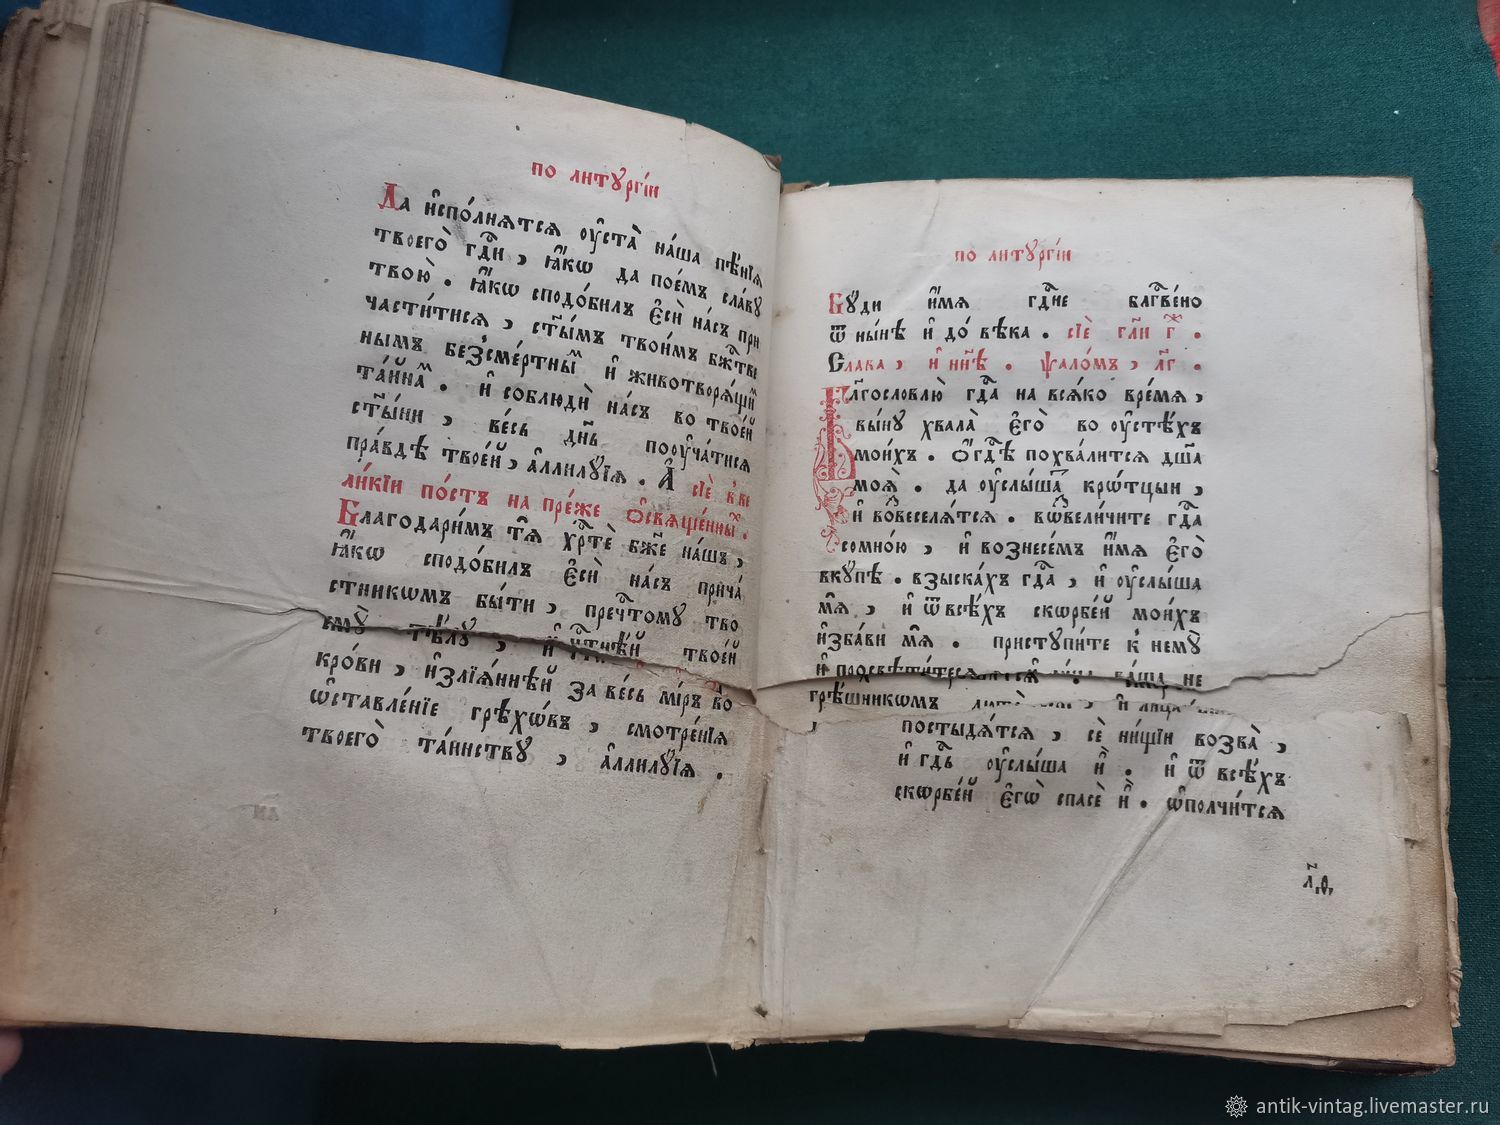 по литꙋргі́и
Да и҆спо́лнѧтсѧ ᲂу҆ста̀ на́ша пѣ́нїѧ
твоего̀ гдⷭ҇и , ꙗ҆́кѡ да пое́мъ сла́вꙋ
твою̀ . ꙗ҆́кѡ сподо́билъ є҆сѝ на́съ при
части́тисѧ , ст҃ы́мъ твои́мъ бжⷭ҇тве
нымъ безсме́ртныⷨ и҆ животворѧ́щиⷨ
та́йнаⷨ . и҆ соблюдѝ на́съ во твое́й
ст҃ы́ни , ве́сь дн҃ь поᲂуча́тисѧ
пра́вдѣ твое́й , а҆ллилꙋ́їѧ . А҆ сїѐ в вe
ли́кїи по́стъ на пре́же ѻ҆свѧще́нныⷯ .
Благодари́мъ тѧ̀ хрⷭ҇тѐ бж҃е на́шъ ,
ꙗ҆́кѡ сподо́билъ є҆сѝ на́съ прича́
стникѡмъ бы́ти , пречⷭ҇томꙋ тво
емꙋ̀ тѣ́лꙋ , и҆ чⷭ҇тнѣ́й твое́й
кро́ви , и҆злїѧ́ннѣй за ве́сь мі́ръ во
ѡ҆ставле́нїе грѣхѡ́въ , смотре́нїѧ
твоего̀ та́инствꙋ , а҆ллилꙋ́їѧ .
по литꙋргі́и
Бꙋ́ди и҆́мѧ гдⷭ҇не блгⷭ҇ве́но
ѿ ны́нѣ и҆ до́ вѣка . сїѐ гл҃и г҃ⷤ .
Слава , и҆ нн҃ѣ . ѱало́мъ , л҃г .
Бл҃гословлю̀ гдⷭ҇а на всѧ́ко вре́мѧ ,
вы́нꙋ хвала̀ є҆гѡ̀ во ᲂу҆стѣ́хъ
мои́хъ . ѻ҆ гдⷭ҇ѣ похва́литсѧ дш҃а
моѧ̀ . да ᲂу҆слы́шатъ крѡ́тцыи ,
и҆ возвеселѧ́тсѧ . возвели́чите гдⷭ҇а
сомно́ю , и҆ вознесе́мъ и҆́мѧ є҆гѡ̀
вкꙋ́пѣ . взыска́хъ гдⷭ҇а , и҆ ᲂу҆слы́ша
мѧ̀ , и҆ ѿ всѣ́хъ скѡрбе́й мои́хъ
и҆зба́ви мѧ̀ . пристꙋпи́те к немꙋ̀
и҆ просвѣти́тесѧ и҆ ва́ша не
грѣ́шникѡмъ и҆
постыдѧ́тсѧ , сѐ ни́щїи возва̀ ,
и҆ гдⷭ҇ь ᲂу҆слы́ша и҆̀ . и҆ ѿ всѣ́хъ
скѡрбе́й є҆гѡ̀ спасѐ и҆̀ . ѡ҆полчи́тсѧ
antik-vintag.livemaster.ru